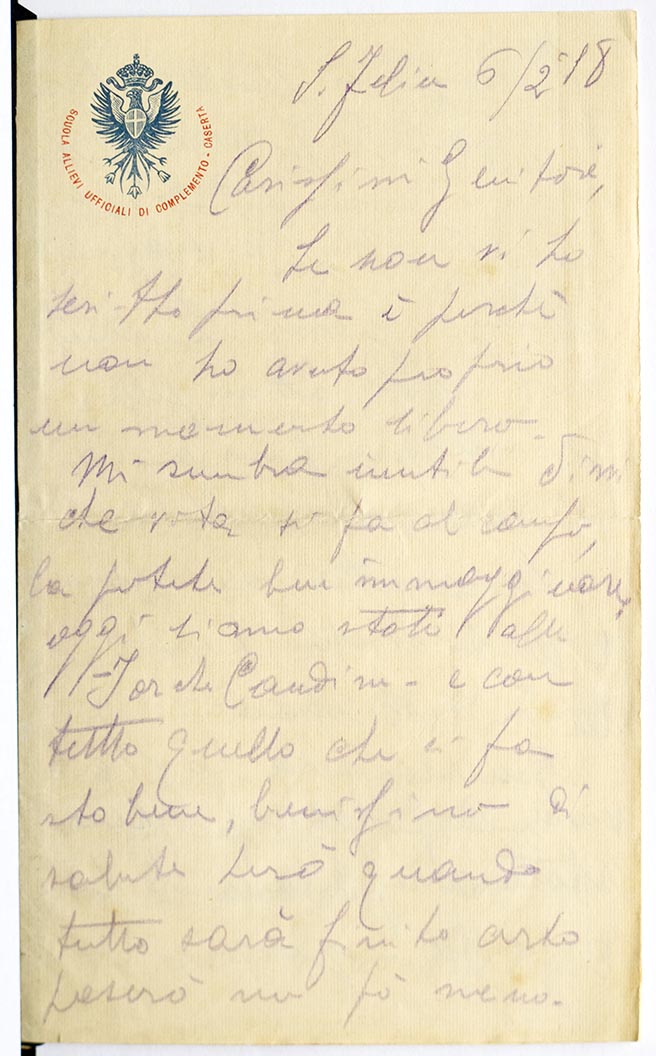 SCUOLA ALLIEVI UFFICIALI DI COMPLEMENTO - CASERTA
S. Felice 6/2 18
Carissimi Genitori,
Se non vi ho
scritto prima è perchè
non ho avuto proprio
un momento libero.
Mi sembra inutile dirvi
che vita si fa al campo,
la potete ben immagginare,
oggi siamo stati alle
- Forche Caudine - e con
tutto quello che si fa
sto bene, benissimo di
salute però quando
tutto sarà finito certo
peserò un pò meno.